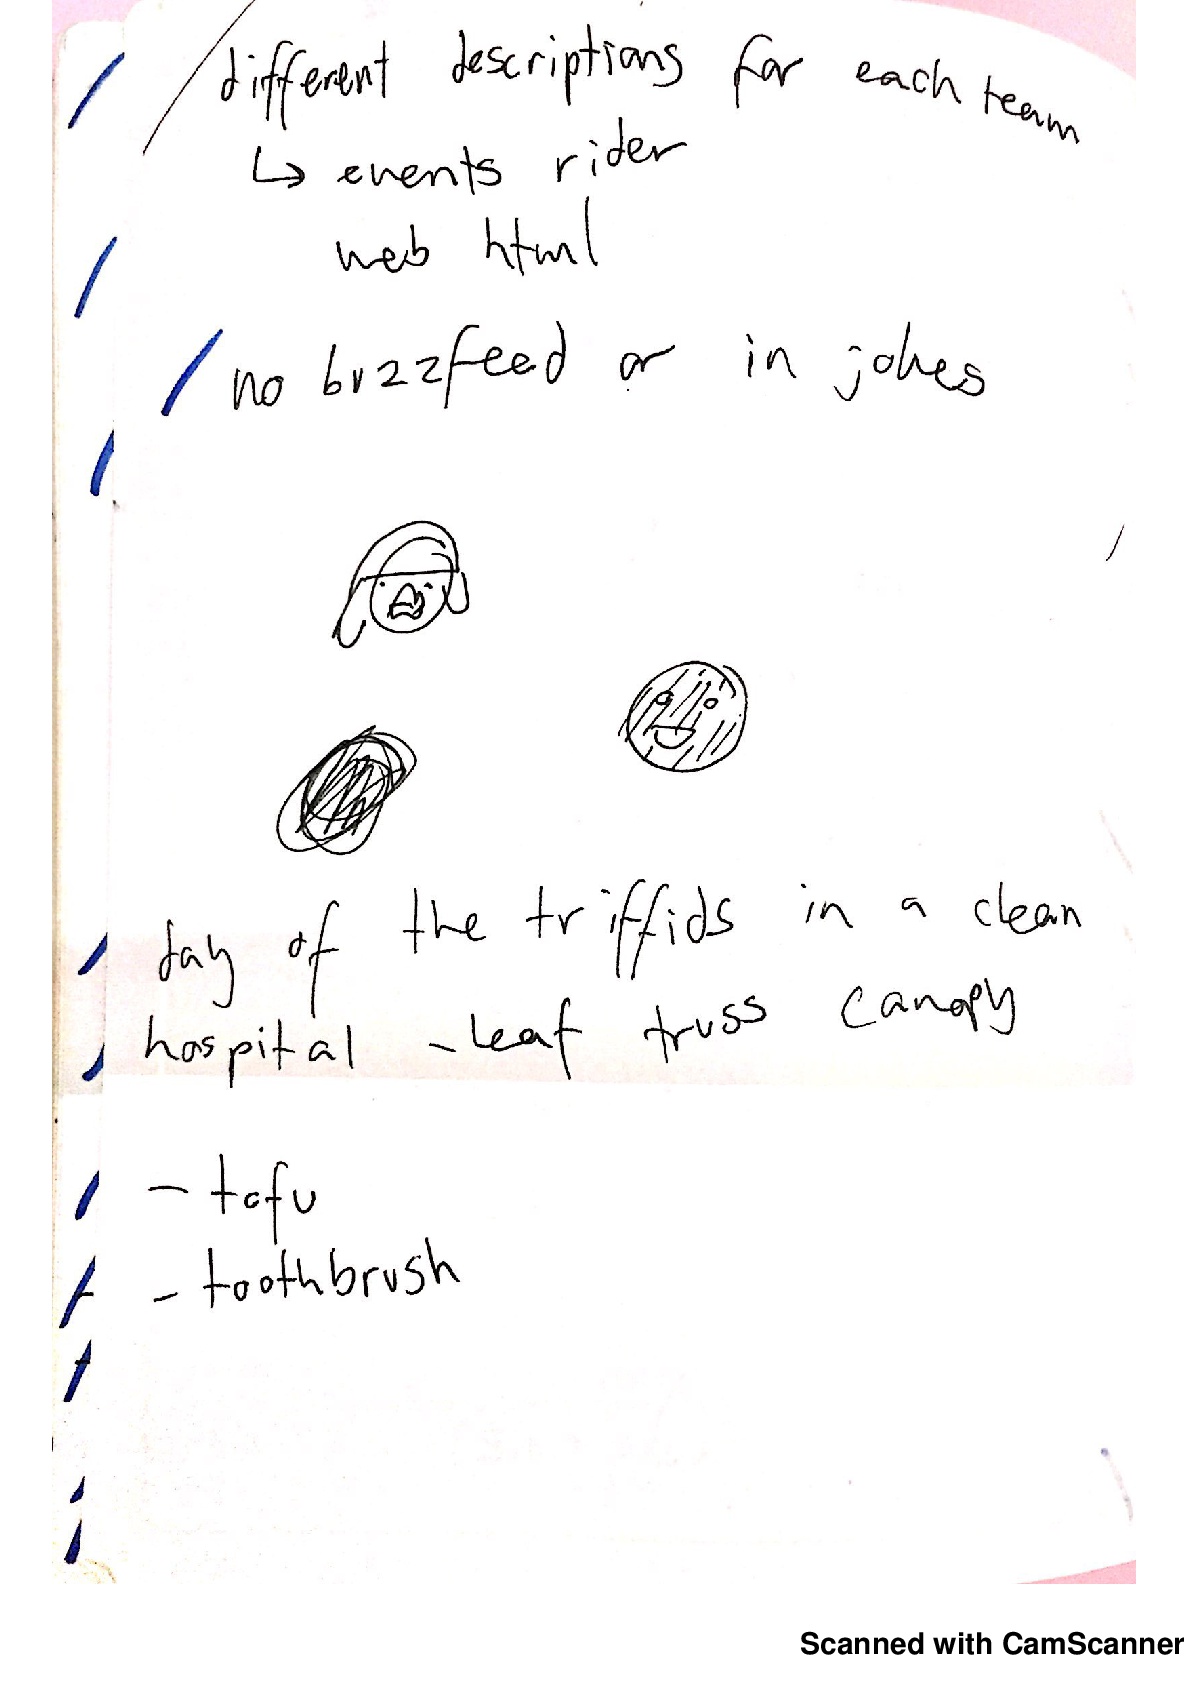 different descriptions for each team
↳ events rider
web html
no buzzfeed or in jokes
day of the triffids in a clean
hospital - leaf truss canopy
- tofu
- toothbrush
Scanned with CamScanner